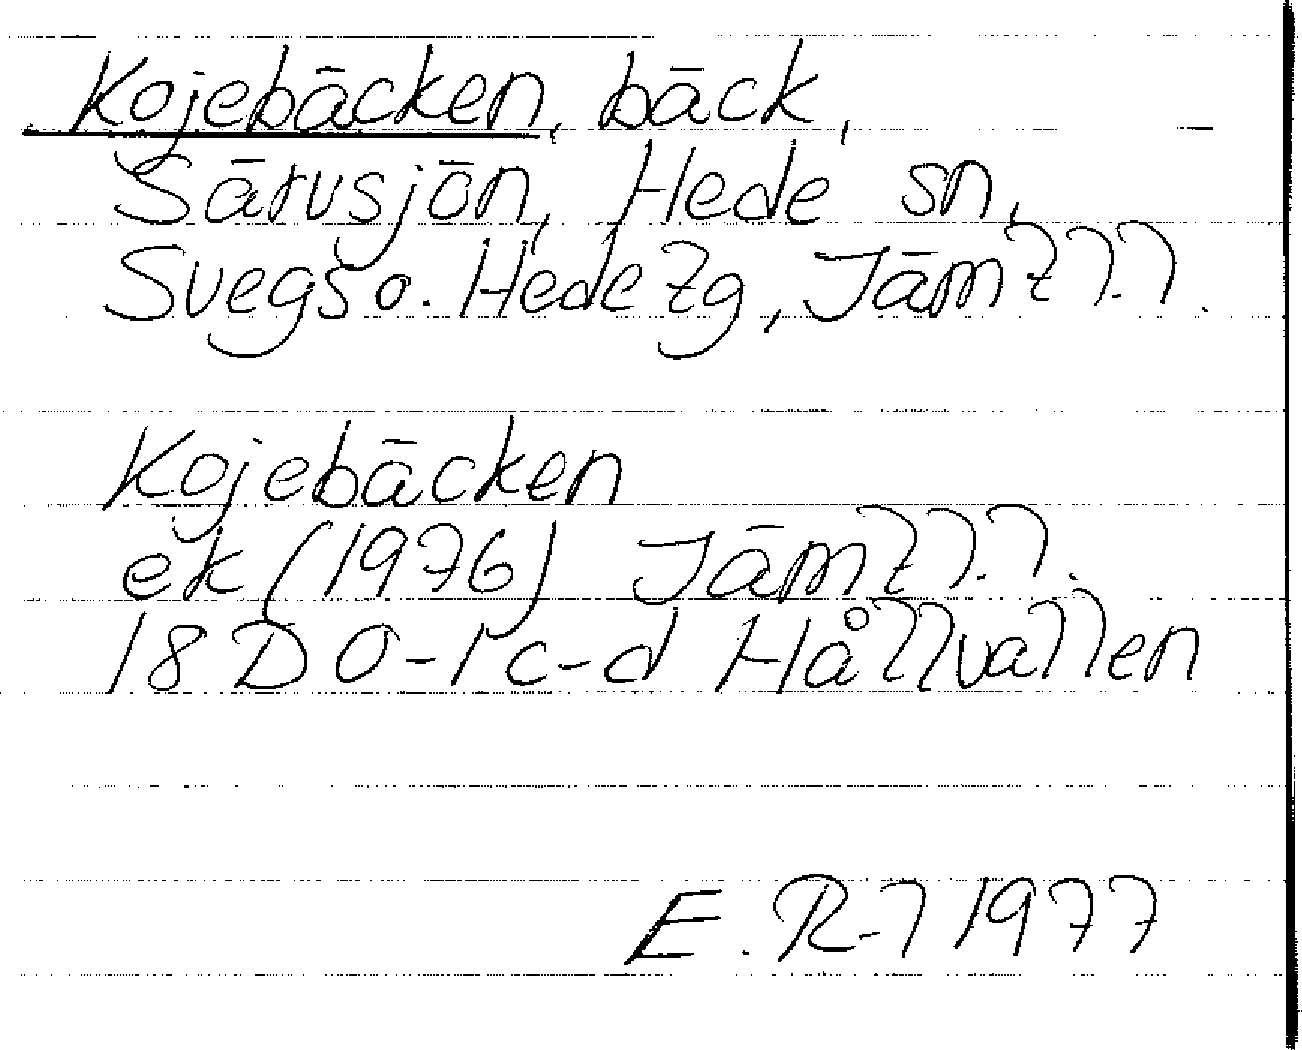 Kojebäcken, bäck,
Särvsjön, Hede sn,
Svegs o. Hede tg, Jämtl.l.
Kojebäcken
ek (1976) Jämtl.l.
18D 0-1 c-d Hållvallen
E. R-l 1977